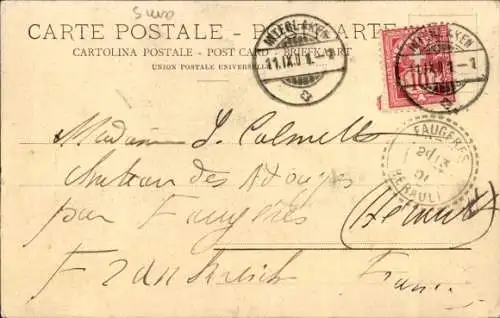 Suisse
CARTE POSTALE - POSTKARTE
CARTOLINA POSTALE - POST CARD - BRIEFKAART
UNION POSTALE UNIVERSELLE
INTERLAKEN
11.IX.01.
INTERLAKEN
11.IX.01.-1
FAUGÈRES
HÉRAULT
Madame L. Calmette
château des Adouzes
par Faugères (Hérault)
Frankreich France